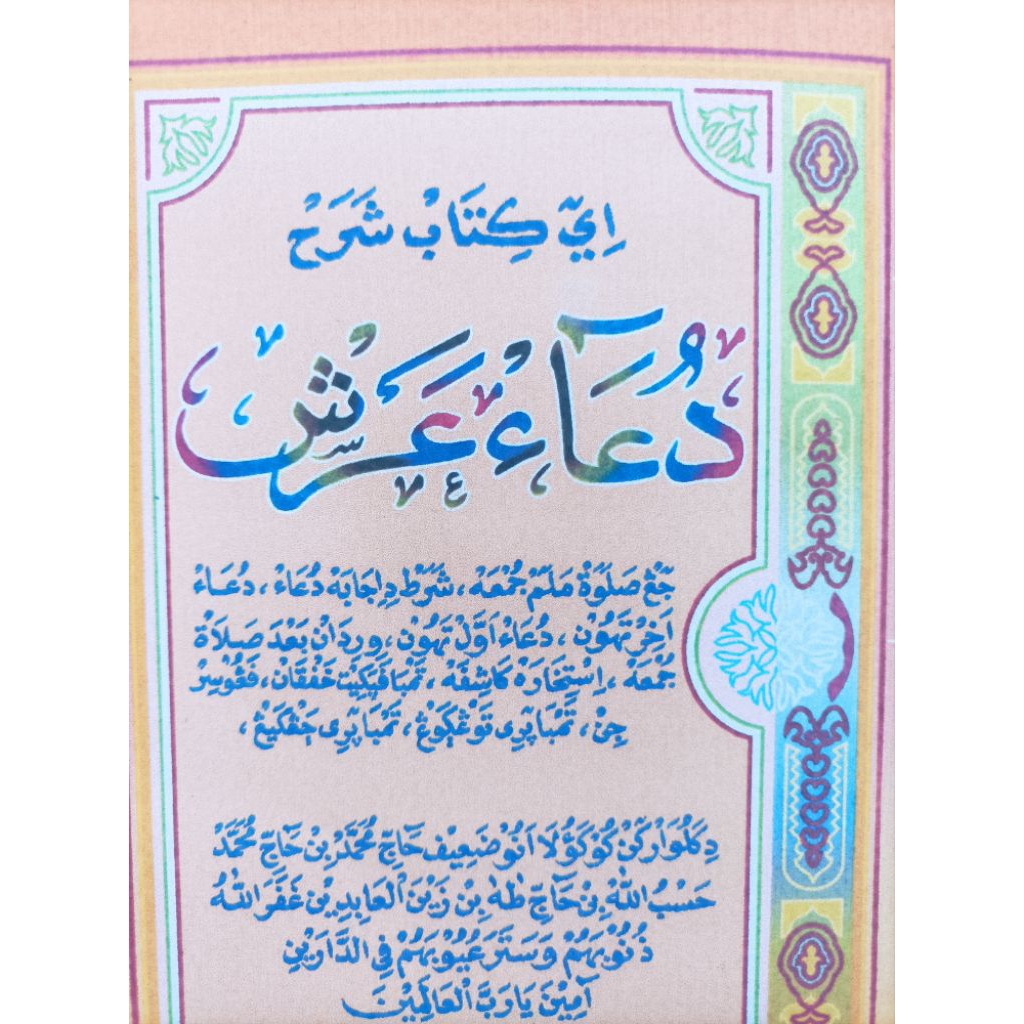 اِيَ كِتَابْ شَرَحْ
دُعَاءْ عَرَشْ
جّڠْ صَلَوةْ مَلَمْ جُمْعَهْ، شَرَطْ دِاِجَابَهْ دُعَاءْ، دُعَاءْ
اَخِرْ تَهُونْ، دُعَاءْ اَوَّلْ تَهُونْ، وِرِدَانْ بَعْدَ صَلَاةْ
جُمْعَهْ، اِسْتِخَارَهْ كَاشِفَهْ، تَمْبَا فَيَكِيتْ خَفْقَانْ، فَڠُوْسِرْ
جِنْ، تَمْبَا پَرِي تَوْڠْكَوڠْ، تَمْبَا پَرِي جَڠْكَيڠْ،
دِكَلُوَارْكَنْ كَؤُلَا اَنُوْ ضَعِيفْ حَاجّ مُحَمَّدْ بِنْ حَاجّ مُحَمَّدْ
حَسْبُ اللهْ بِنْ حَاجّ طٰهٰ بِنْ زَيْنَ الْعَابِدِيْنْ غَفَرَ اللهُ
ذُنُوْبَهُمْ وَسَتَرَ عُيُوْبَهُمْ فِي الدَّارَيْنِ
آمِيْنَ يَارَبَّ الْعَالَمِيْنَ